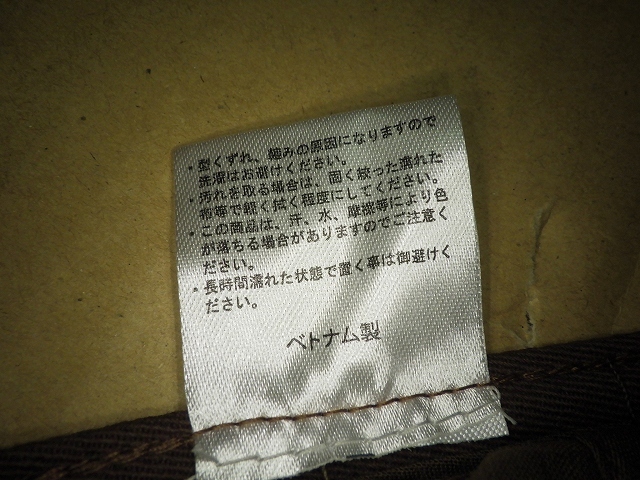 ・型くずれ、縮みの原因になりますので
洗濯はお避けください。
・汚れを取る場合は、固く絞った濡れた
布等で軽く拭く程度にしてください。
・この商品は、汗、水、摩擦等により色
が落ちる場合がありますのでご注意く
ださい。
・長時間濡れた状態で置く事は御避けく
ださい。
ベトナム製